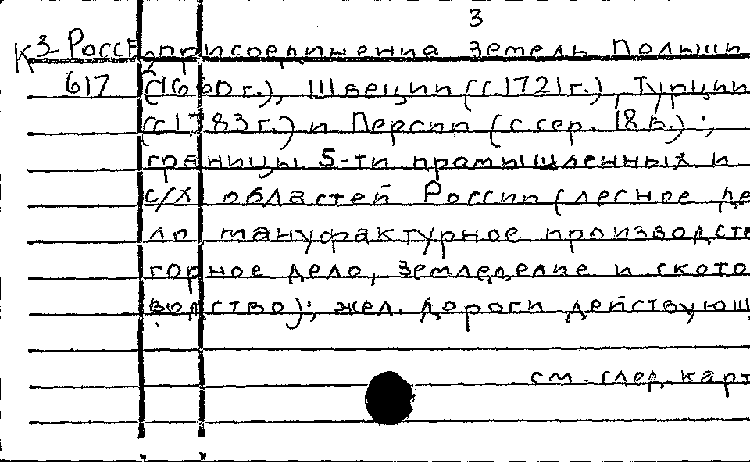 3
К 3 Росс присоединения земель Польши
617 (1660 г.), Швеции (с 1721 г.), Турции
(с 1783 г.) и Персии (с сер. 18 в.);
границы 5-ти промышленных и
с/х областей России (лесное де
ло мануфактурное производств
горное дело, земледелие и ското
водство); жел. дороги действующ
см. след. карт